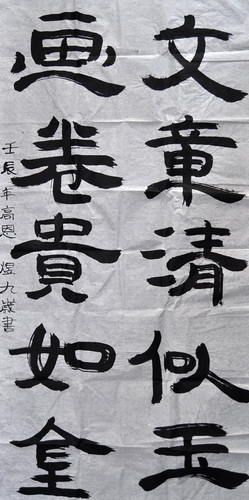 文章清似玉
画卷貴如金
壬辰年高恩煜九歲書